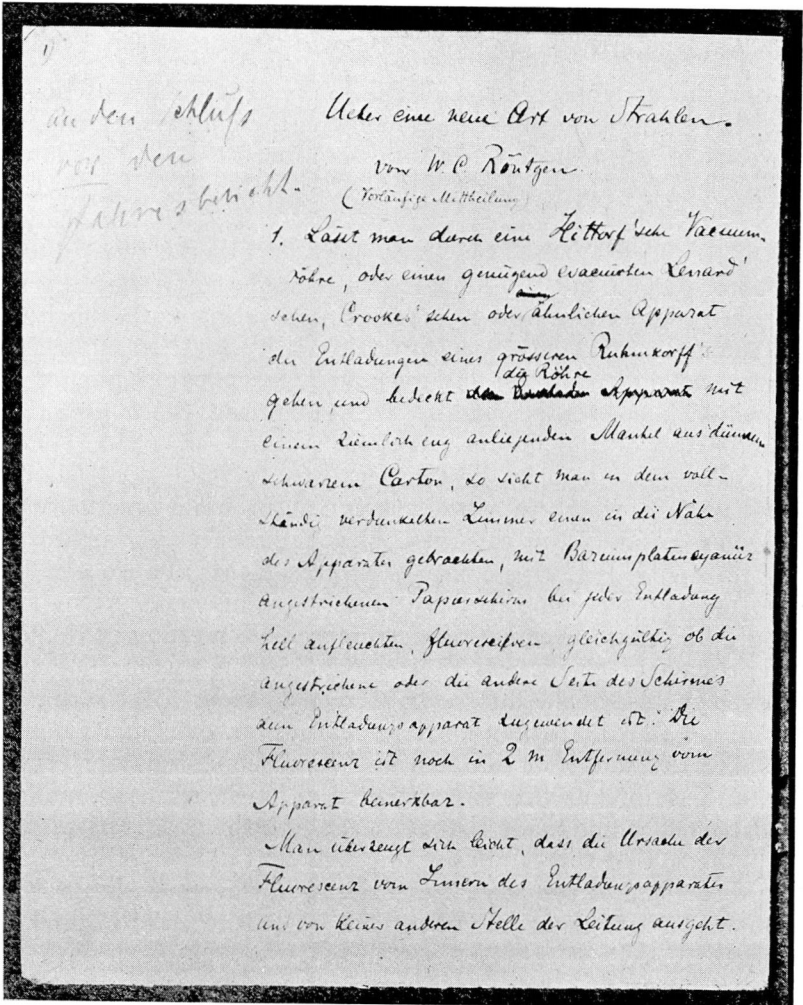 1)
an den Schluss
vor den
Jahresbericht.
Ueber eine neue Art von Strahlen.
von W. C. Röntgen.
(Vorläufige Mittheilung)
1. Lässt man durch eine Hittorf'sche Vacuum-
röhre, oder einen genügend evacuirten Lenard'
schen, Crookes'schen oder ähnlichen Apparat
die Entladungen eines grösseren Ruhmkorff's
die Röhre
gehen und bedeckt Apparat mit
einem ziemlich eng anliegenden Mantel aus dünnem
schwarzem Carton, so sieht man in dem voll-
ständig verdunkelten Zimmer einen in die Nähe
des Apparates gebrachten, mit Bariumplatincyanür
angestrichenen Papierschirm bei jeder Entladung
hell aufleuchten, fluoresciren, gleichgültig ob die
angestrichene oder die andere Seite des Schirmes
dem Entladungsapparat zugewendet ist. Die
Fluorescenz ist noch in 2 m Entfernung vom
Apparat bemerkbar.
Man überzeugt sich leicht, dass die Ursache der
Fluorescenz vom Innern des Entladungsapparates
und von keiner anderen Stelle der Leitung ausgeht.